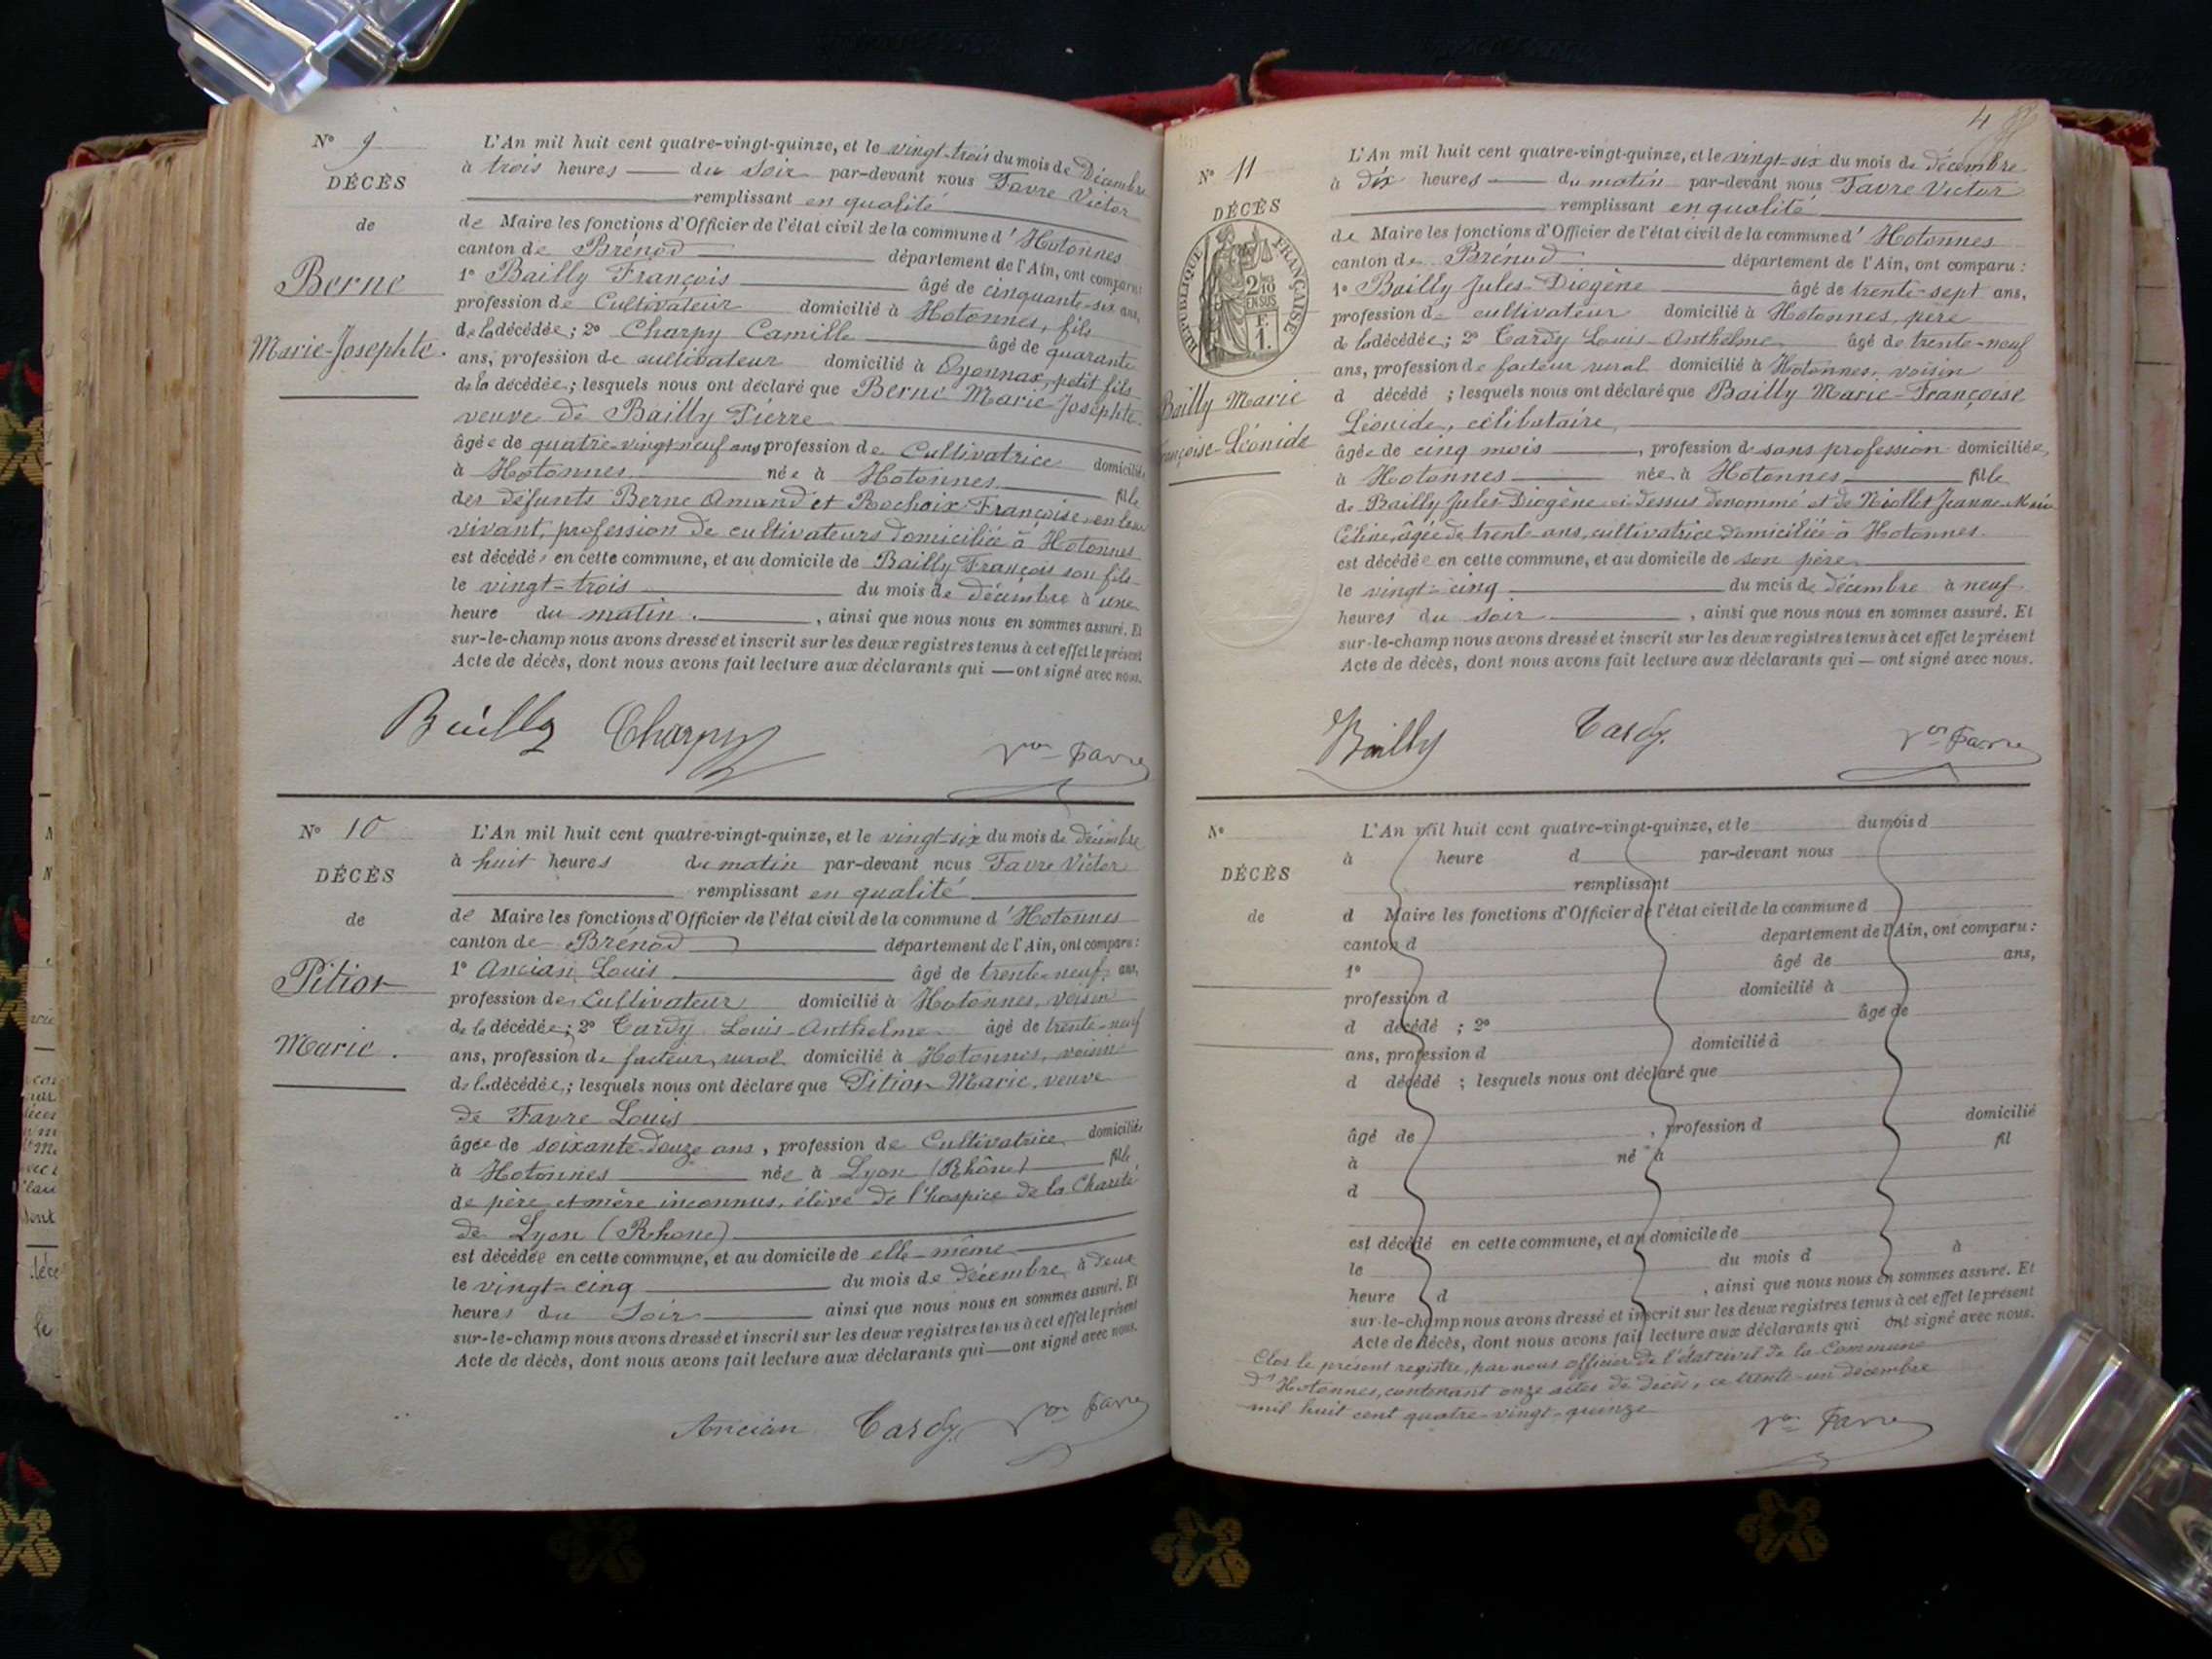 N° 9
DÉCÈS
de
Berne
Marie-Josephte.
L'An mil huit cent quatre-vingt-quinze, et le vingt-trois du mois de Décembre
à trois heures du soir par-devant nous Favre Victor
remplissant en qualité
de Maire les fonctions d'Officier de l'état civil de la commune d'Hotonnes
canton de Brénod département de l'Ain, ont comparu:
1° Bailly François âgé de cinquante-six ans,
profession de Cultivateur domicilié à Hotonnes, fils
de la décédée; 2° Charpy Camille âgé de quarante
ans, profession de cultivateur domicilié à Oyonnax, petit fils
de la décédée; lesquels nous ont déclaré que Berne Marie Josephte.
veuve de Bailly Pierre
âgée de quatre-vingt-neuf ans profession de Cultivatrice domiciliée
à Hotonnes née à Hotonnes fille
des défunts Berne Amand et Rochaix Françoise en leur
vivant, profession de cultivateurs domiciliée à Hotonnes
est décédée en cette commune, et au domicile de Bailly François son fils
le vingt-trois du mois de décembre à une
heure du matin, ainsi que nous nous en sommes assuré. Et
sur-le-champ nous avons dressé et inscrit sur les deux registres tenus à cet effet le présent
Acte de décès, dont nous avons fait lecture aux déclarants qui — ont signé avec nous.
Bailly Charpy Vor Favre
N° 10
DÉCÈS
de
Pition
Marie.
L'An mil huit cent quatre-vingt-quinze, et le vingt-six du mois de décembre
à huit heures du matin par-devant nous Favre Victor
remplissant en qualité
de Maire les fonctions d'Officier de l'état civil de la commune d'Hotonnes
canton de Brénod département de l'Ain, ont comparu:
1° Ancian Louis âgé de trente-neuf ans,
profession de Cultivateur domicilié à Hotonnes, voisin
de la décédée; 2° Cardy Louis-Anthelme âgé de trente-neuf
ans, profession de facteur rural domicilié à Hotonnes, voisin
de la décédée; lesquels nous ont déclaré que Pition Marie, veuve
de Favre Louis
âgée de soixante-douze ans, profession de Cultivatrice domiciliée
à Hotonnes née à Lyon (Rhône) fille
de père et mère inconnus, élève de l'hospice de la Charité
de Lyon (Rhone)
est décédée en cette commune, et au domicile de elle-même
le vingt-cinq du mois de décembre à deux
heures du soir ainsi que nous nous en sommes assuré. Et
sur-le-champ nous avons dressé et inscrit sur les deux registres tenus à cet effet le présent
Acte de décès, dont nous avons fait lecture aux déclarants qui — ont signé avec nous.
Ancian Cardy Vor Favre
4
N° 11
DÉCÈS
RÉPUBLIQUE FRANÇAISE
2/10 EN SUS
Bailly Marie
Françoise-Léonide
L'An mil huit cent quatre-vingt-quinze, et le vingt-six du mois de décembre
à dix heures du matin par-devant nous Favre Victor
remplissant en qualité
de Maire les fonctions d'Officier de l'état civil de la commune d'Hotonnes
canton de Brénod département de l'Ain, ont comparu:
1° Bailly Jules-Diogène âgé de trente-sept ans,
profession de cultivateur domicilié à Hotonnes, père
de la décédée; 2° Cardy Louis-Anthelme âgé de trente-neuf
ans, profession de facteur rural domicilié à Hotonnes, voisin
d décédé; lesquels nous ont déclaré que Bailly Marie-Françoise
Léonide, célibataire
âgée de cinq mois, profession de sans profession domiciliée
à Hotonnes née à Hotonnes fille
de Bailly Jules Diogène ci dessus dénommé et de Niollet Jeanne-Marie
Céline, âgée de trente ans, cultivatrice, domiciliée à Hotonnes.
est décédée en cette commune, et au domicile de son père
le vingt-cinq du mois de décembre à neuf
heures du soir, ainsi que nous nous en sommes assuré. Et
sur-le-champ nous avons dressé et inscrit sur les deux registres tenus à cet effet le présent
Acte de décès, dont nous avons fait lecture aux déclarants qui — ont signé avec nous.
Bailly Cardy. Vor Favre
N°
DÉCÈS
de
L'An mil huit cent quatre-vingt-quinze, et le du mois d
à heure d par-devant nous
remplissant
d Maire les fonctions d'Officier de l'état civil de la commune d
canton d département de l'Ain, ont comparu:
1° âgé de ans,
profession d domicilié à
d décédé; 2° âgé de
ans, profession d domicilié à
d décédé; lesquels nous ont déclaré que
âgé de, profession d domicilié
à né à fil
d
est décédé en cette commune, et au domicile de
le du mois d à
heure d, ainsi que nous nous en sommes assuré. Et
sur-le-champ nous avons dressé et inscrit sur les deux registres tenus à cet effet le présent
Acte de décès, dont nous avons fait lecture aux déclarants qui ont signé avec nous.
Clos le présent registre, par nous officier de l'état civil de la Commune
d'Hotonnes, contenant onze actes de décès, ce trente-un décembre
mil huit cent quatre-vingt-quinze
Vor Favre